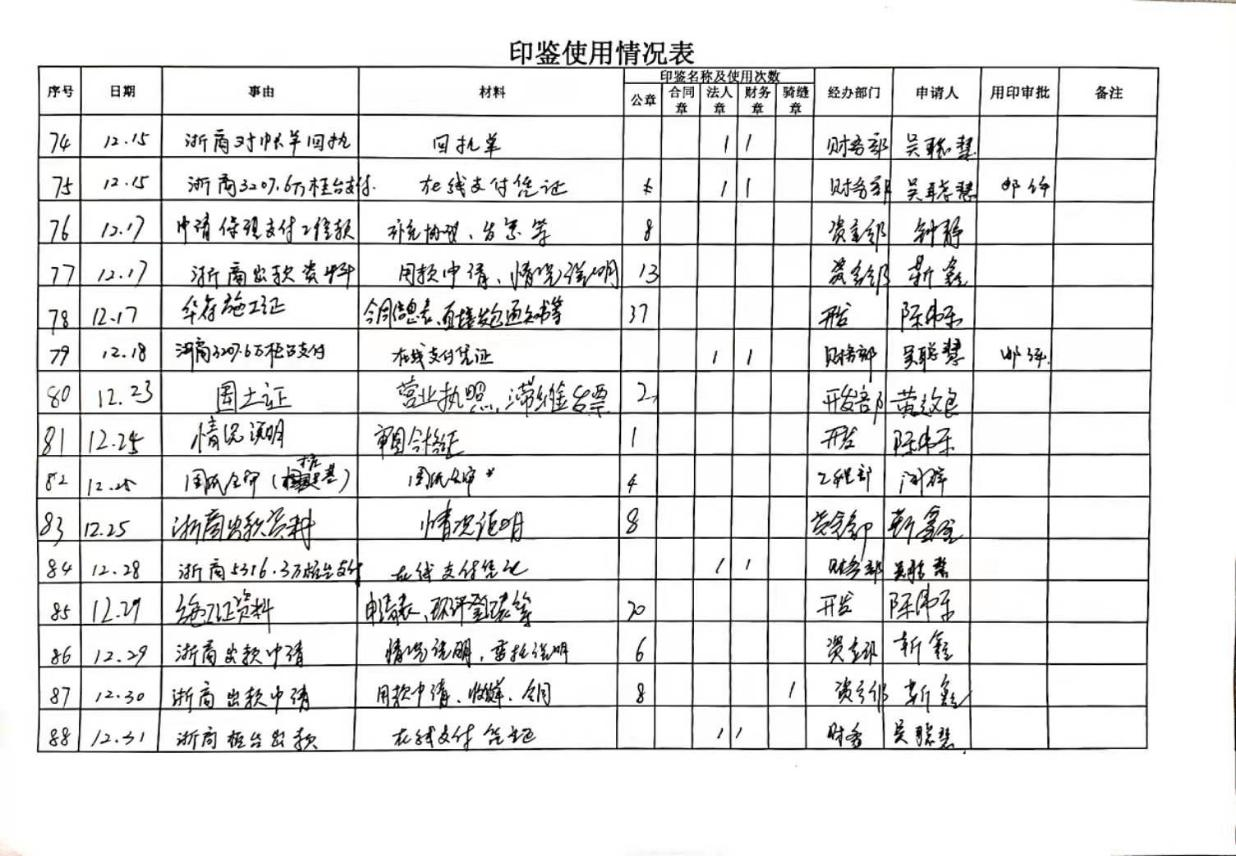 印鉴使用情况表
序号 日期 事由 材料 印鉴名称及使用次数 经办部门 申请人 用印审批 备注
公章 合同章 法人章 财务章 骑缝章
74 12.15 浙商对帐单回执 回执单 1 1 财务部 吴聪慧
75 12.15 浙商3207.6万柜台支付 在线支付凭证 1 1 财务部 吴聪慧
76 12.17 申请保理支付工程款 补充协议、发票等 8 资金部 钟静
77 12.17 浙商出款资料 用款申请、情况说明 13 资金部 靳鑫
78 12.17 施工证 合同信息表、直接发包通知书等 37 开发 陈伟乐
79 12.18 浙商3207.6万柜台支付 在线支付凭证 1 1 财务部 吴聪慧
80 12.23 国土证 营业执照、发票 2 开发部 黄
81 12.24 情况说明 审图合格证 1 开发 陈伟乐
82 12.25 4 工程部
83 12.25 浙商出款资料 情况证明 8 资金部 靳鑫
84 12.28 浙商5316.3万柜台支付 在线支付凭证 1 1 财务部 吴聪慧
85 12.29 施工证资料 申请表、环评登记表等 20 开发 陈伟乐
86 12.29 浙商出款申请 情况说明、委托说明 6 资金部 靳鑫
87 12.30 浙商出款申请 用款申请、收据、合同 8 1 资金部 靳鑫
88 12.31 浙商柜台出款 在线支付凭证 1 1 财务 吴聪慧